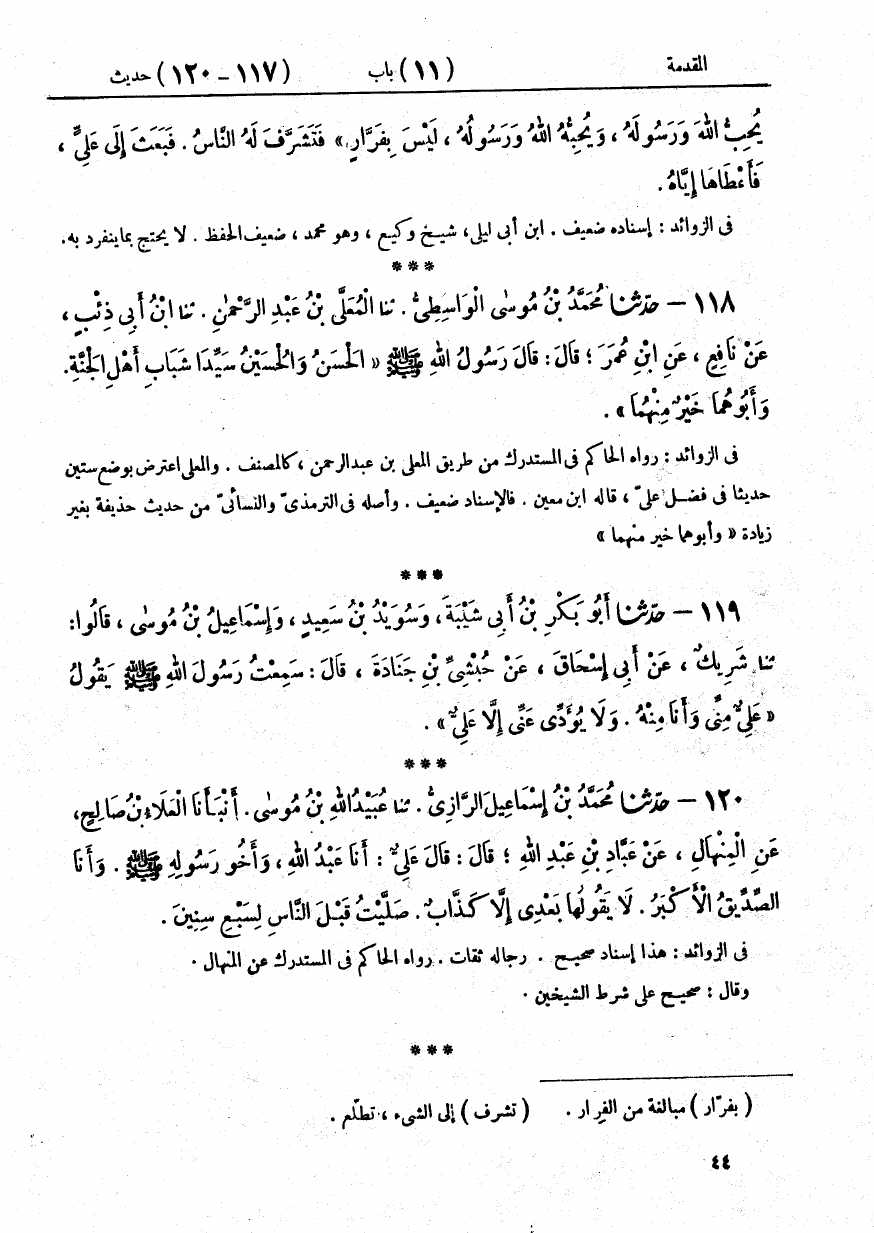 المقدمة (١١) باب (١١٧ – ١٢٠) حديث
يُحِبُّ اللهَ وَرَسُولَهُ ، وَيُحِبُّهُ اللهُ وَرَسُولُهُ ، لَيْسَ بِفَرَّارٍ » فَتَشَرَّفَ لَهُ النَّاسُ . فَبَعَثَ إِلَى عَلِيٍّ ،
فَأَعْطَاهَا إِيَّاهُ .
فى الزوائد : إسناده ضعيف . ابن أبى ليلى ، شيخ وكيع ، وهو محمد ، ضعيف الحفظ . لا يحتج بما ينفرد به .
***
١١٨ – حَدَّثَنَا مُحَمَّدُ بْنُ مُوسَى الْوَاسِطِىُّ . ثنا الْمُعَلَّى بْنُ عَبْدِ الرَّحْمٰنِ . ثنا ابْنُ أَبِى ذِئْبٍ ،
عَنْ نَافِعٍ ، عَنِ ابْنِ عُمَرَ ؛ قَالَ : قَالَ رَسُولُ اللهِ ﷺ « الْحَسَنُ وَالْحُسَيْنُ سَيِّدَا شَبَابِ أَهْلِ الْجَنَّةِ .
وَأَبُوهُمَا خَيْرٌ مِنْهُمَا » .
فى الزوائد : رواه الحاكم فى المستدرك من طريق المعلى بن عبدالرحمن ، كالمصنف . والمعلى اعترض بوضع ستين
حديثا فى فضل علىّ ، قاله ابن معين . فالإسناد ضعيف . وأصله فى الترمذىّ والنسائىّ من حديث حذيفة بغير
زيادة « وأبوهما خير منهما »
***
١١٩ – حَدَّثَنَا أَبُو بَكْرِ بْنُ أَبِى شَيْبَةَ ، وَسُوَيْدُ بْنُ سَعِيدٍ ، وَإِسْمَاعِيلُ بْنُ مُوسَى ، قَالُوا :
ثنا شَرِيكٌ ، عَنْ أَبِى إِسْحَاقَ ، عَنْ حُبْشِىِّ بْنِ جَنَادَةَ ، قَالَ : سَمِعْتُ رَسُولَ اللهِ ﷺ يَقُولُ
« عَلِىٌّ مِنِّى وَأَنَا مِنْهُ . وَلَا يُؤَدِّى عَنِّى إِلَّا عَلِىٌّ » .
***
١٢٠ – حَدَّثَنَا مُحَمَّدُ بْنُ إِسْمَاعِيلَ الرَّازِىُّ . ثنا عُبَيْدُ اللهِ بْنُ مُوسَى . أَنْبَأَنَا الْعَلَاءُ بْنُ صَالِحٍ ،
عَنِ الْمِنْهَالِ ، عَنْ عَبَّادِ بْنِ عَبْدِ اللهِ ؛ قَالَ : قَالَ عَلِىٌّ : أَنَا عَبْدُ اللهِ ، وَأَخُو رَسُولِهِ ﷺ . وَأَنَا
الصِّدِّيقُ الْأَكْبَرُ . لَا يَقُولُهَا بَعْدِى إِلَّا كَذَّابٌ . صَلَّيْتُ قَبْلَ النَّاسِ لِسَبْعِ سِنِينَ .
فى الزوائد : هذا إسناد صحيح . رجاله ثقات . رواه الحاكم فى المستدرك عن المنهال .
وقال : صحيح على شرط الشيخين .
***
( بفرّار ) مبالغة من الفِرار . ( تشرف ) إلى الشىء ، تطلّع .
٤٤